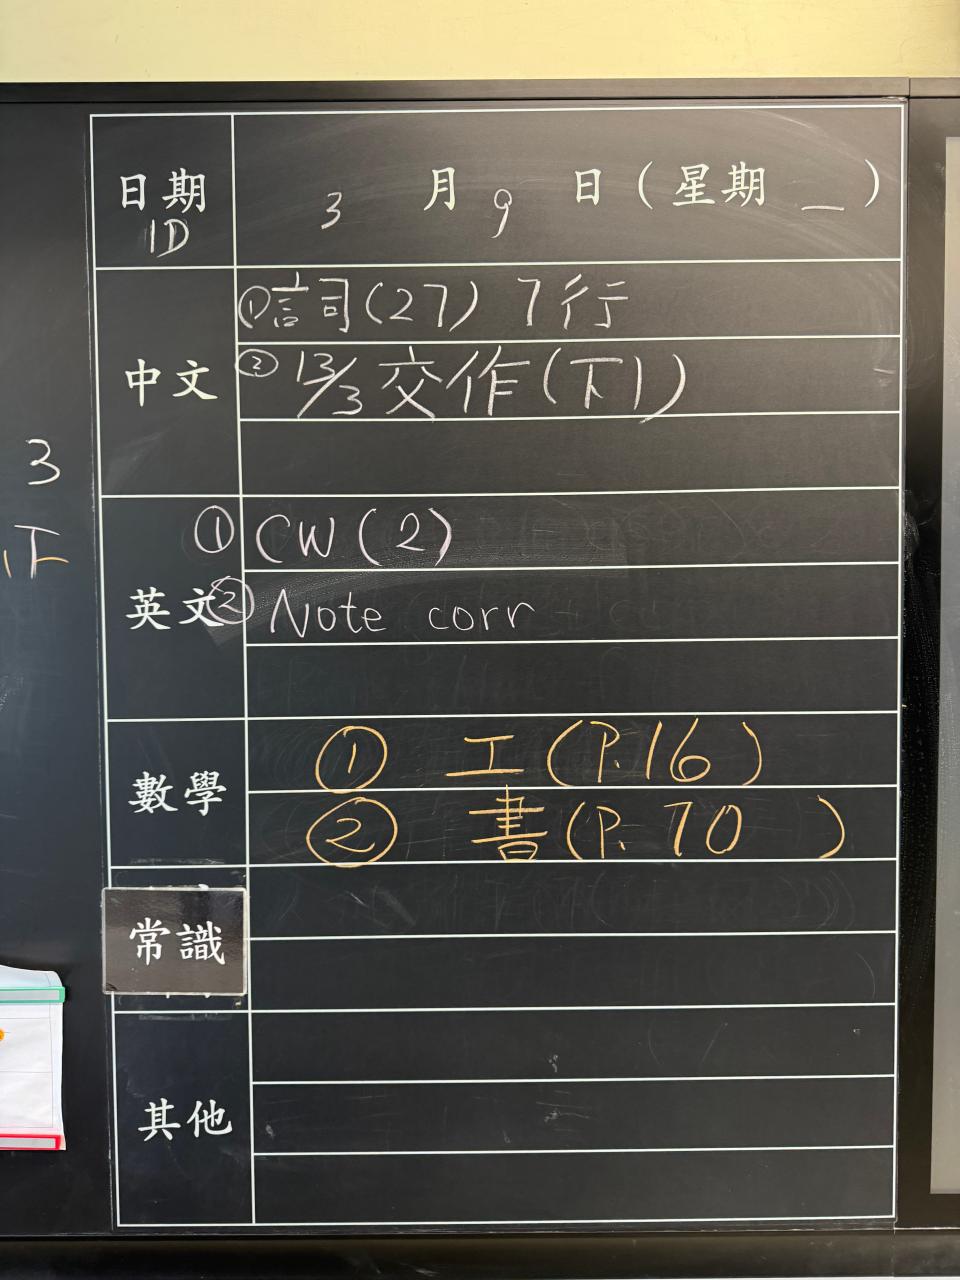 日期 3 月 9 日 ( 星期 一 )
1D
中文
① 詞 (27) 7行
② 13/3 交作 (下1)
3
下
英文
① CW (2)
② Note corr
數學
① 工 (P.16)
② 書 (P.70 )
常識
其他